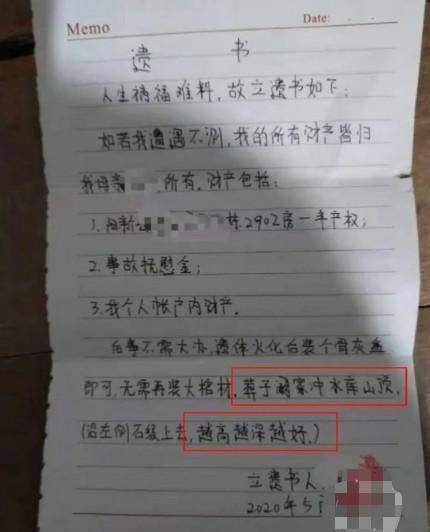 Memo
Date:
遗 书
人生祸福难料,故立遗书如下:
如若我遭遇不测,我的所有财产皆归
我母亲 所有.财产包括:
1. 栋2902房一半产权;
2.事故抚慰金;
3.我个人帐户内财产.
后事不需大办,遗体火化后装个骨灰盒
即可,无需再装大棺材,葬于阔家冲水库山顶.
(沿左侧石级上去,越高越深越好.)
立遗书人.
2020年5